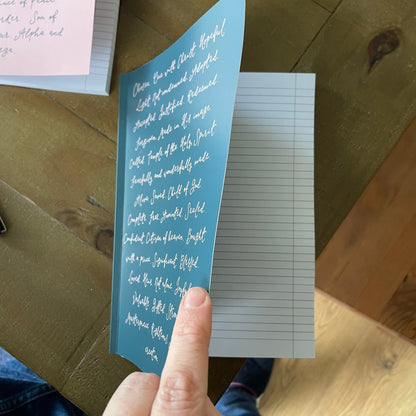 Peace
order. Son of
Alpha and
Chosen One with Christ Hopeful
Light Not condemned Adopted
Accepted Justified Redeemed
Forgiven Made in his image
Called Temple of the Holy Spirit
Fearfully and wonderfully made
Alive Saved Child of God
Complete Free Wanted Sealed
Confident Citizen of heaven Bought
with a price Significant Blessed
Loved Heir Not alone
Valuable Gifted
Masterpiece